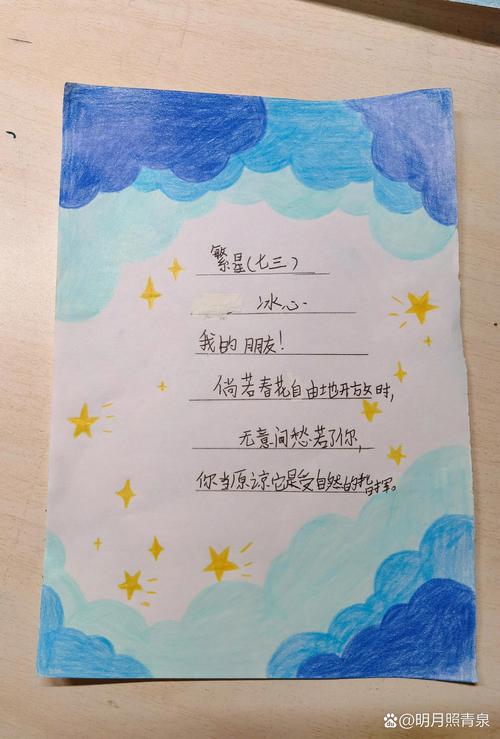 繁星(七三)
冰心
我的朋友!
倘若春花自由地开放时,
无意间愁苦了你,
你当原谅它是受自然的指挥。
@明月照青泉